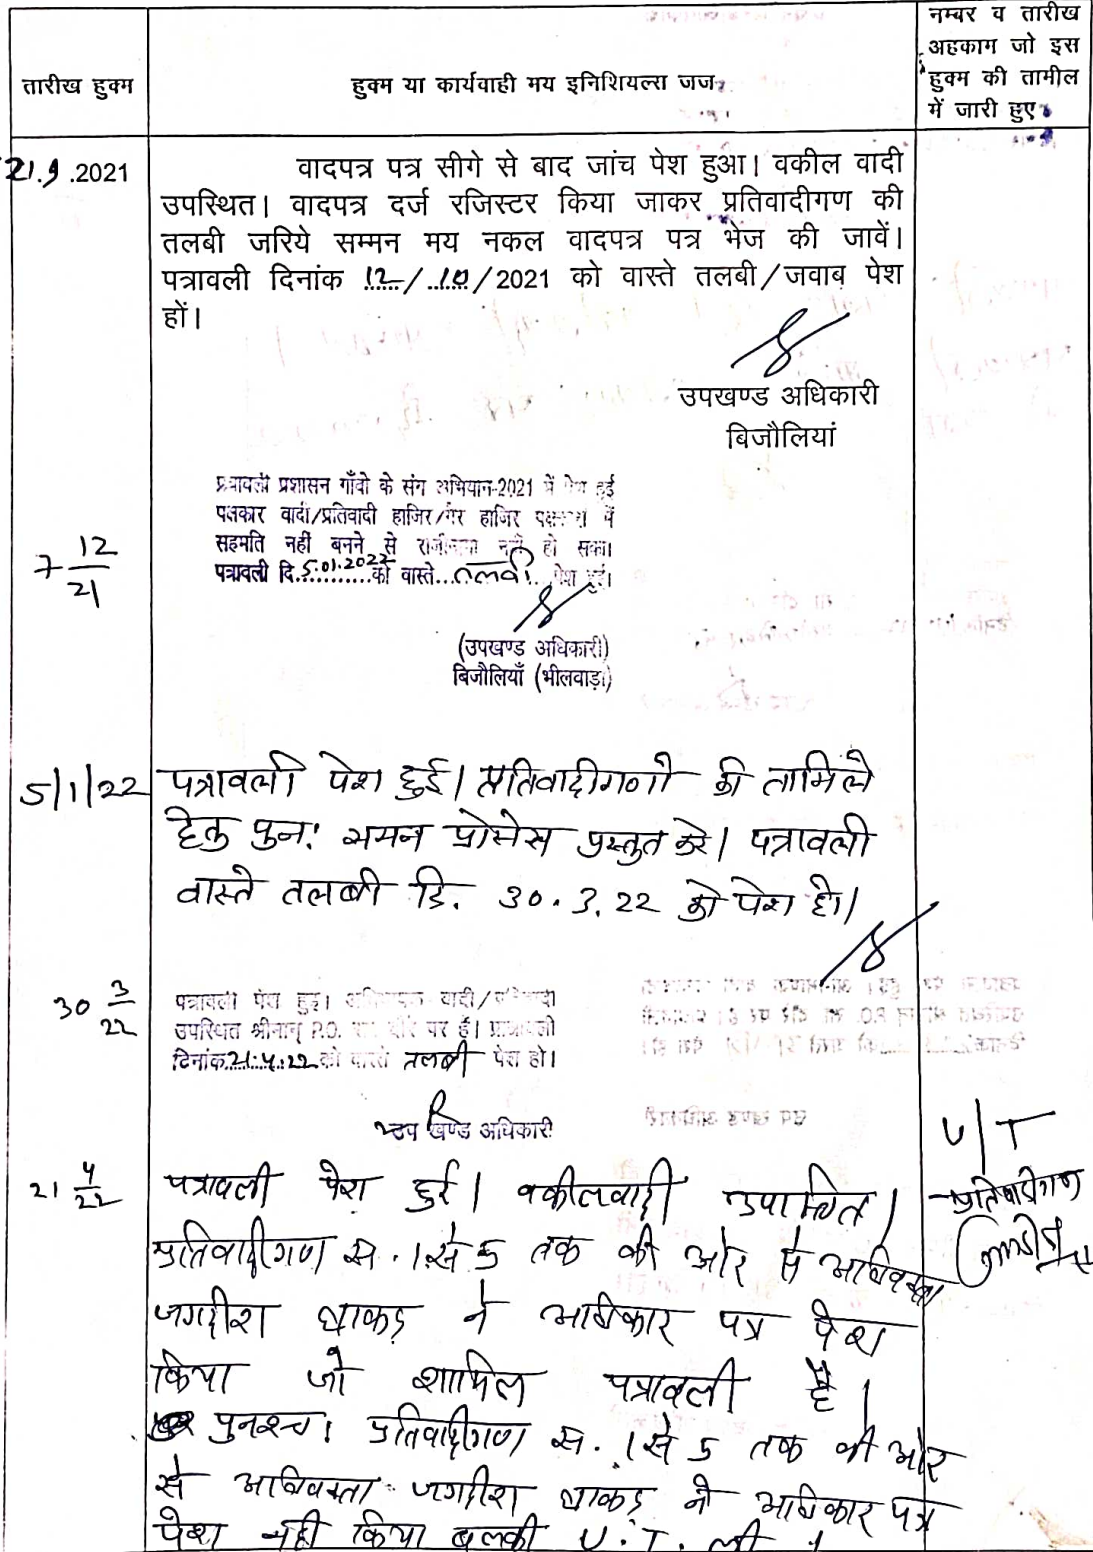 तारीख हुक्म
हुक्म या कार्यवाही मय इनिशियल्स जज
नम्बर व तारीख
अहकाम जो इस
हुक्म की तामील
में जारी हुए
21.9.2021
वादपत्र पत्र सीगे से बाद जांच पेश हुआ। वकील वादी
उपस्थित। वादपत्र दर्ज रजिस्टर किया जाकर प्रतिवादीगण की
तलबी जरिये सम्मन मय नकल वादपत्र पत्र भेज की जावें।
पत्रावली दिनांक 12/10/2021 को वास्ते तलबी/जवाब पेश
हों।
उपखण्ड अधिकारी
बिजौलियां
7 12/21
पत्रावली प्रशासन गाँवो के संग अभियान-2021 में पेश हुई
पक्षकार वादी/प्रतिवादी हाजिर/गैर हाजिर में
सहमति नहीं बनने से राजीनामा नहीं हो सका।
पत्रावली दि. 5.01.2022 को वास्ते तलबी पेश हुई।
(उपखण्ड अधिकारी)
बिजौलियाँ (भीलवाड़ा)
5/1/22
पत्रावली पेश हुई। प्रतिवादीगणो की तामिले
हेतु पुन: समन प्रोसेस प्रस्तुत करे। पत्रावली
वास्ते तलबी दि. 30.3.22 को पेश हो।
30 3/22
पत्रावली पेश हुई। वादी/
उपस्थित श्रीमान् P.O. पर है। पत्रावली
दिनांक 21.4.22 को वास्ते तलबी पेश हो।
उप खण्ड अधिकारी
U/T
प्रतिवादीगण
21 4/22
पत्रावली पेश हुई। वकीलवादी उपस्थित।
प्रतिवादीगण स. 1 से 5 तक की ओर से अधिवक्ता
जगदीश धाकड़ ने अधिकार पत्र पेश
किया जो शामिल पत्रावली है।
पुनश्च। प्रतिवादीगण स. 1 से 5 तक की ओर
से अधिवक्ता जगदीश धाकड़ ने अधिकार पत्र
पेश नही किया बलकी U.T. ली।